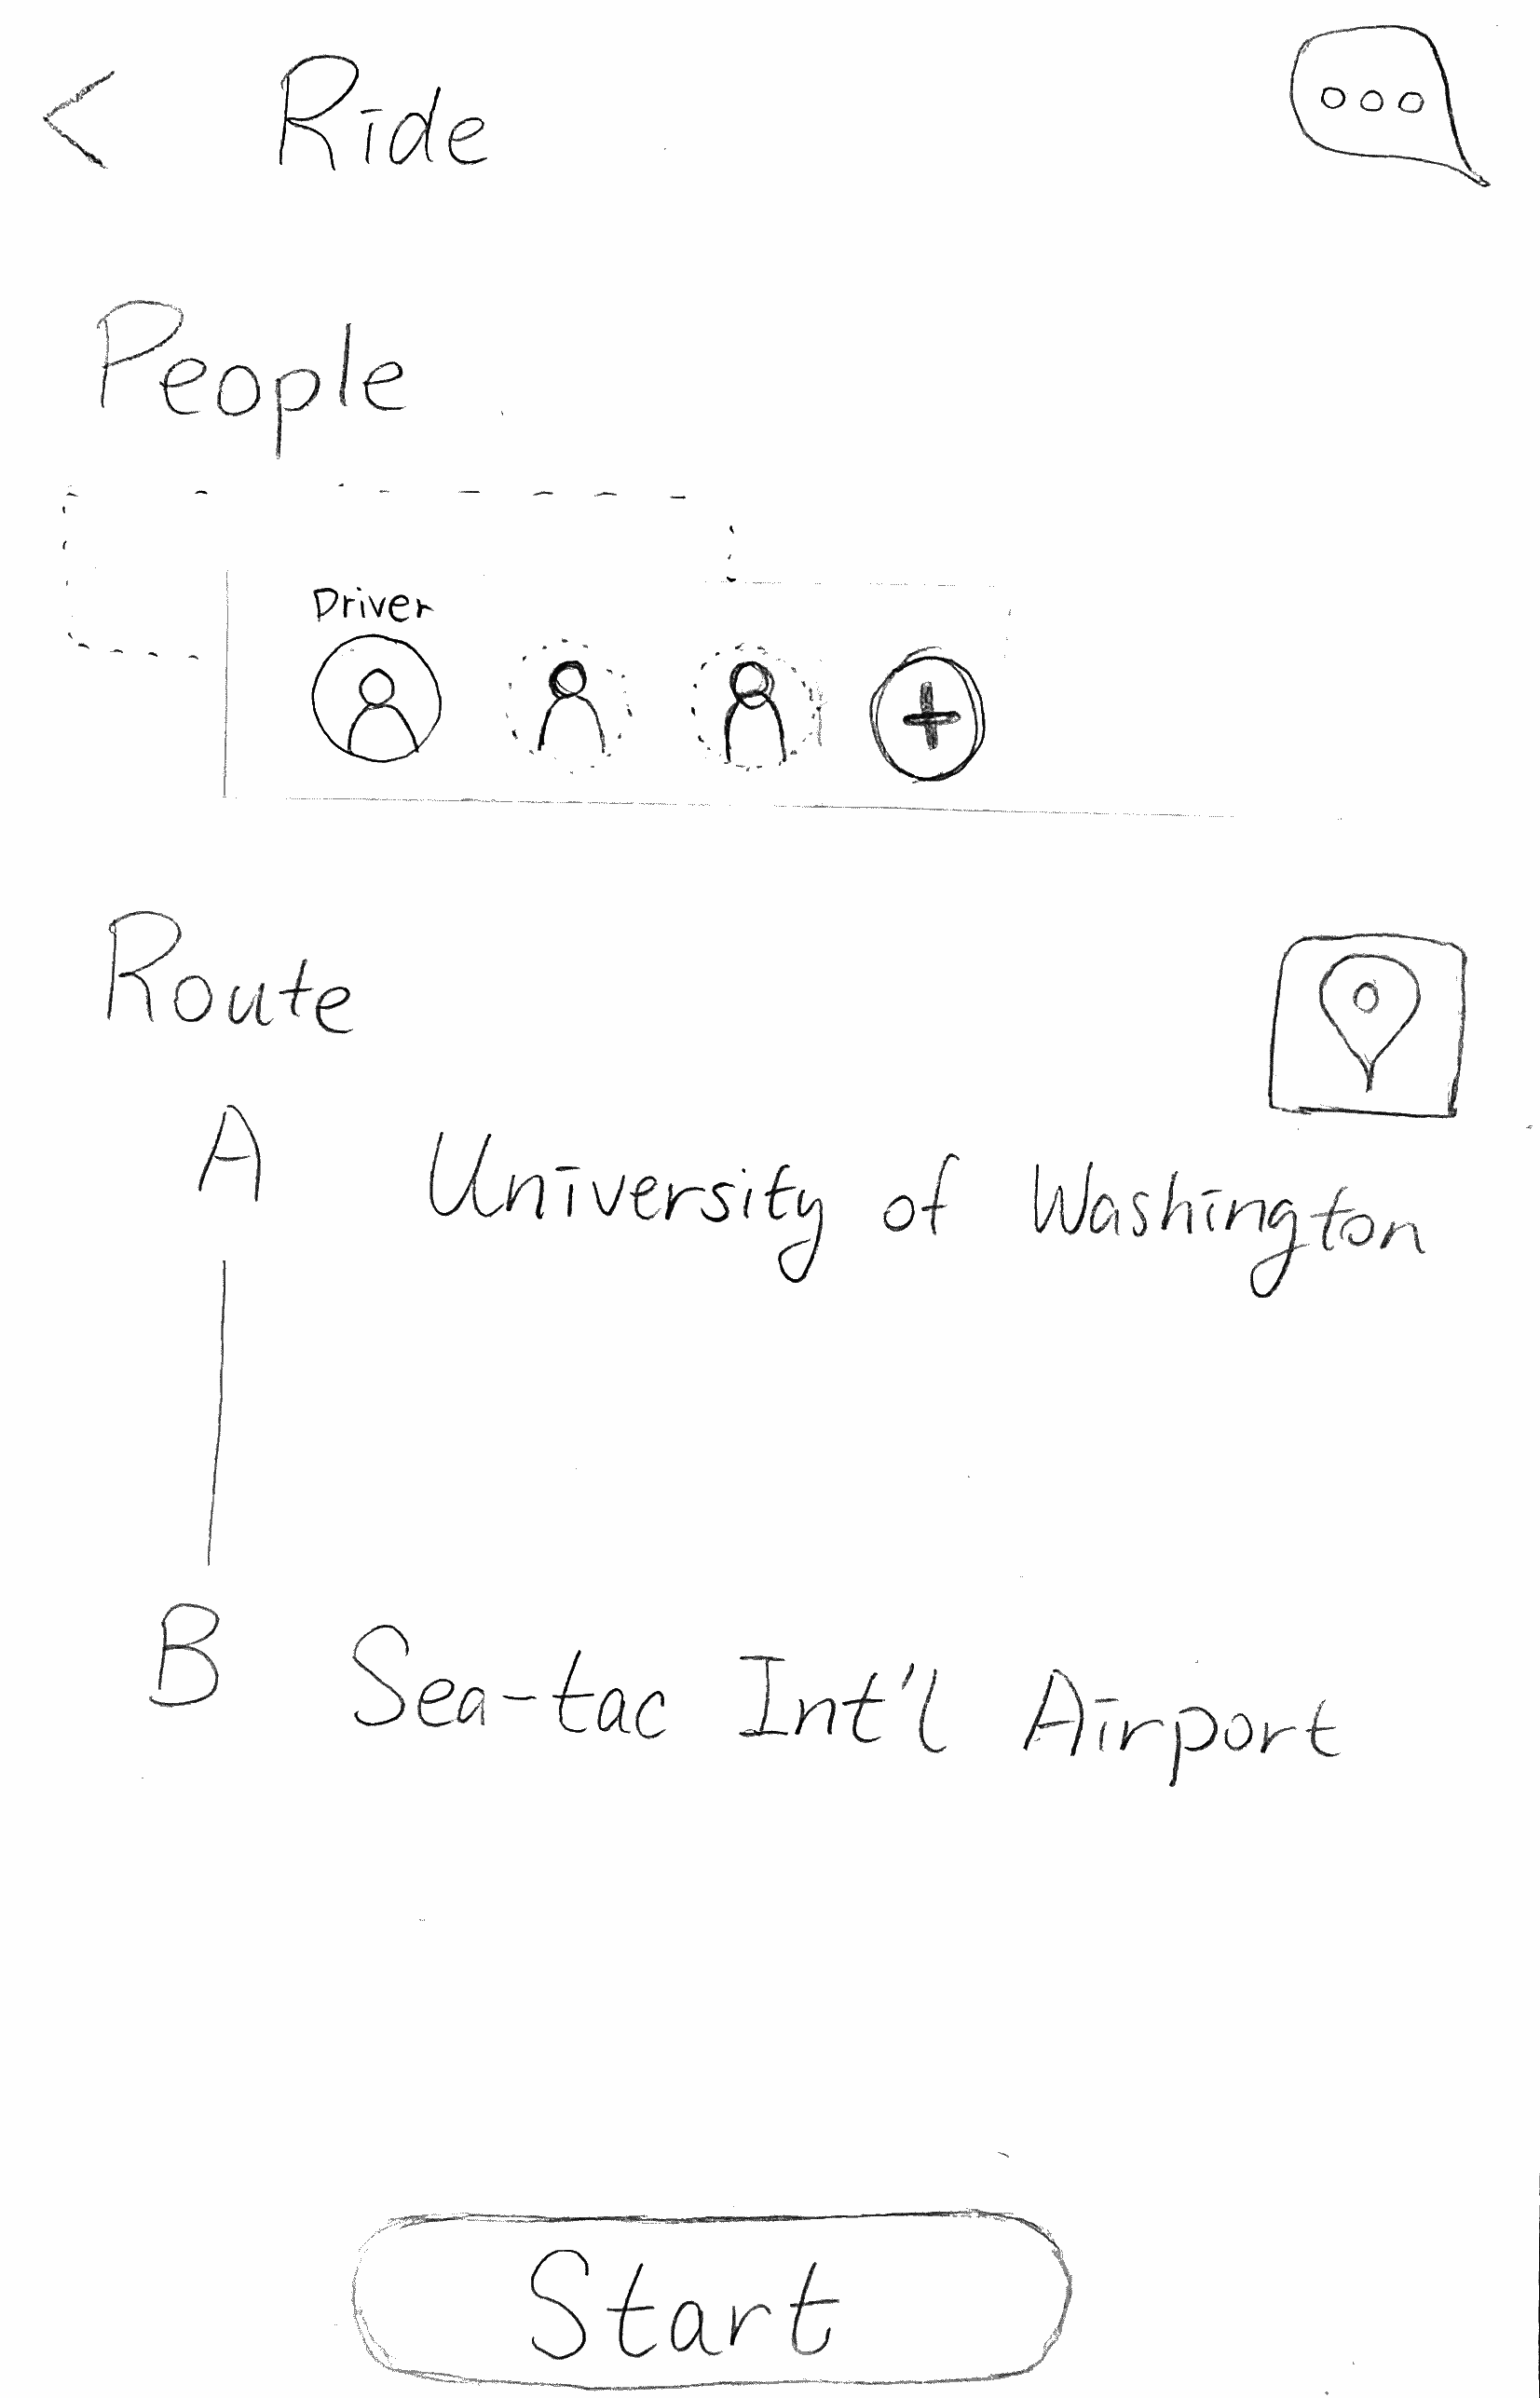 < Ride
People
Driver
Route
A University of Washington
B Sea-tac Int'l Airport
Start